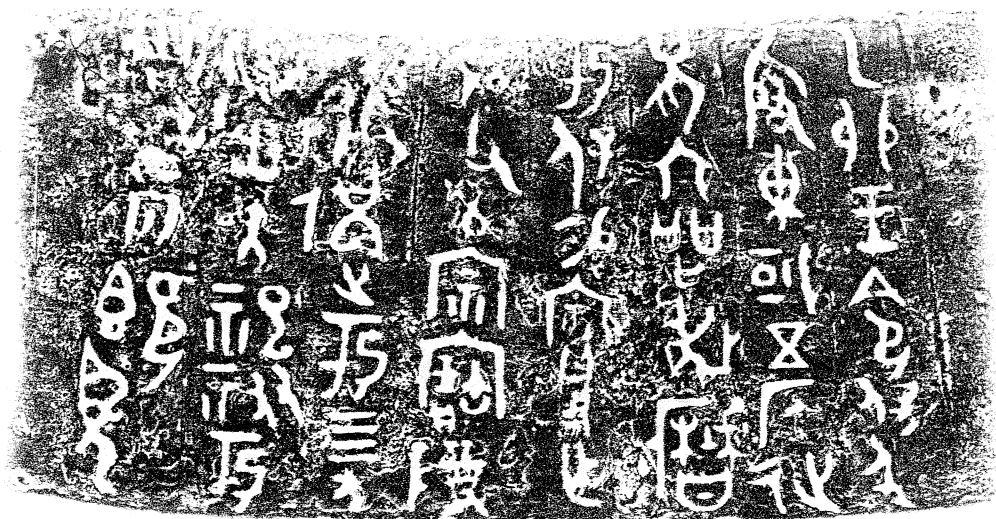 乙卯王令保及
殷東或五侯征
兄六品蔑曆于
保易賓用乍
文父癸宗寶尊
彝遘于四方
王大祀祓于
周才二月既望